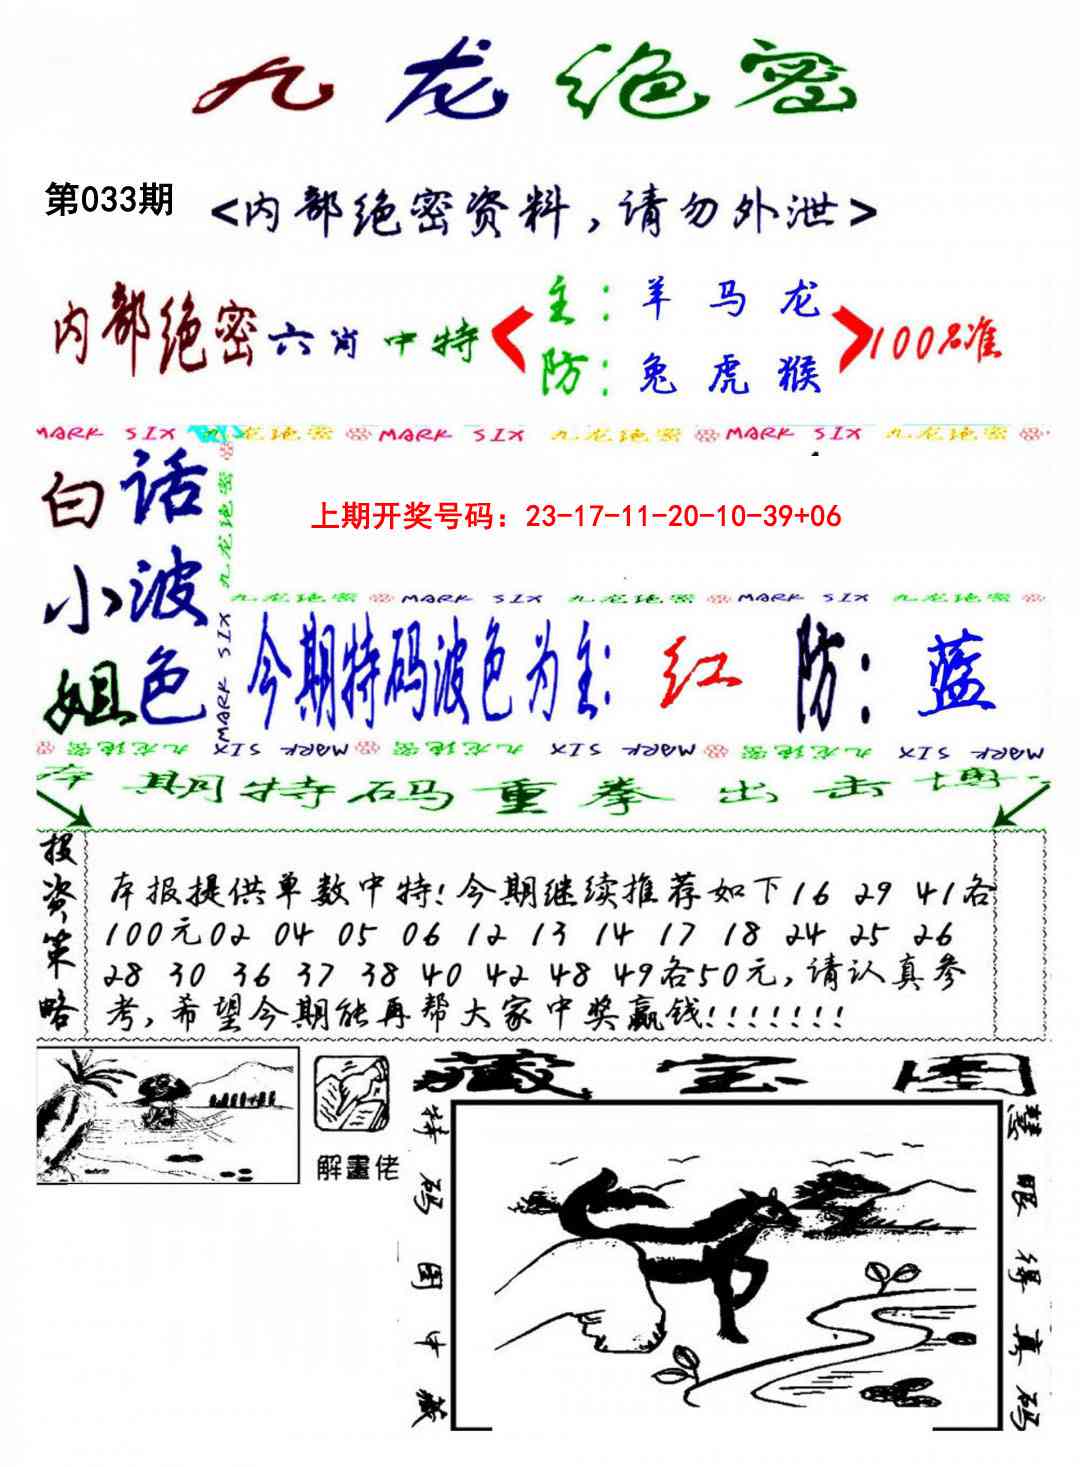 九龙绝密
第033期
<内部绝密资料,请勿外泄>
内部绝密六肖中特
主：羊 马 龙
防：兔 虎 猴
100%准
MARK SIX 九龙绝密 MARK SIX 九龙绝密 MARK SIX 九龙绝密
白话小波姐色
九龙绝密
MARK SIX
上期开奖号码：23-17-11-20-10-39+06
九龙绝密 MARK SIX 九龙绝密 MARK SIX 九龙绝密
今期特码波色为主：红 防：蓝
九龙绝密 MARK SIX 九龙绝密 MARK SIX 九龙绝密 MARK SIX
本期特码重拳出击博
投资策略
本报提供单数中特!今期继续推荐如下16 29 41各
100元02 04 05 06 12 13 14 17 18 24 25 26
28 30 36 37 38 40 42 48 49各50元,请认真参
考,希望今期能再帮大家中奖赢钱!!!!!!!
解畫佬
藏宝图
特码图中藏
慧眼得真码